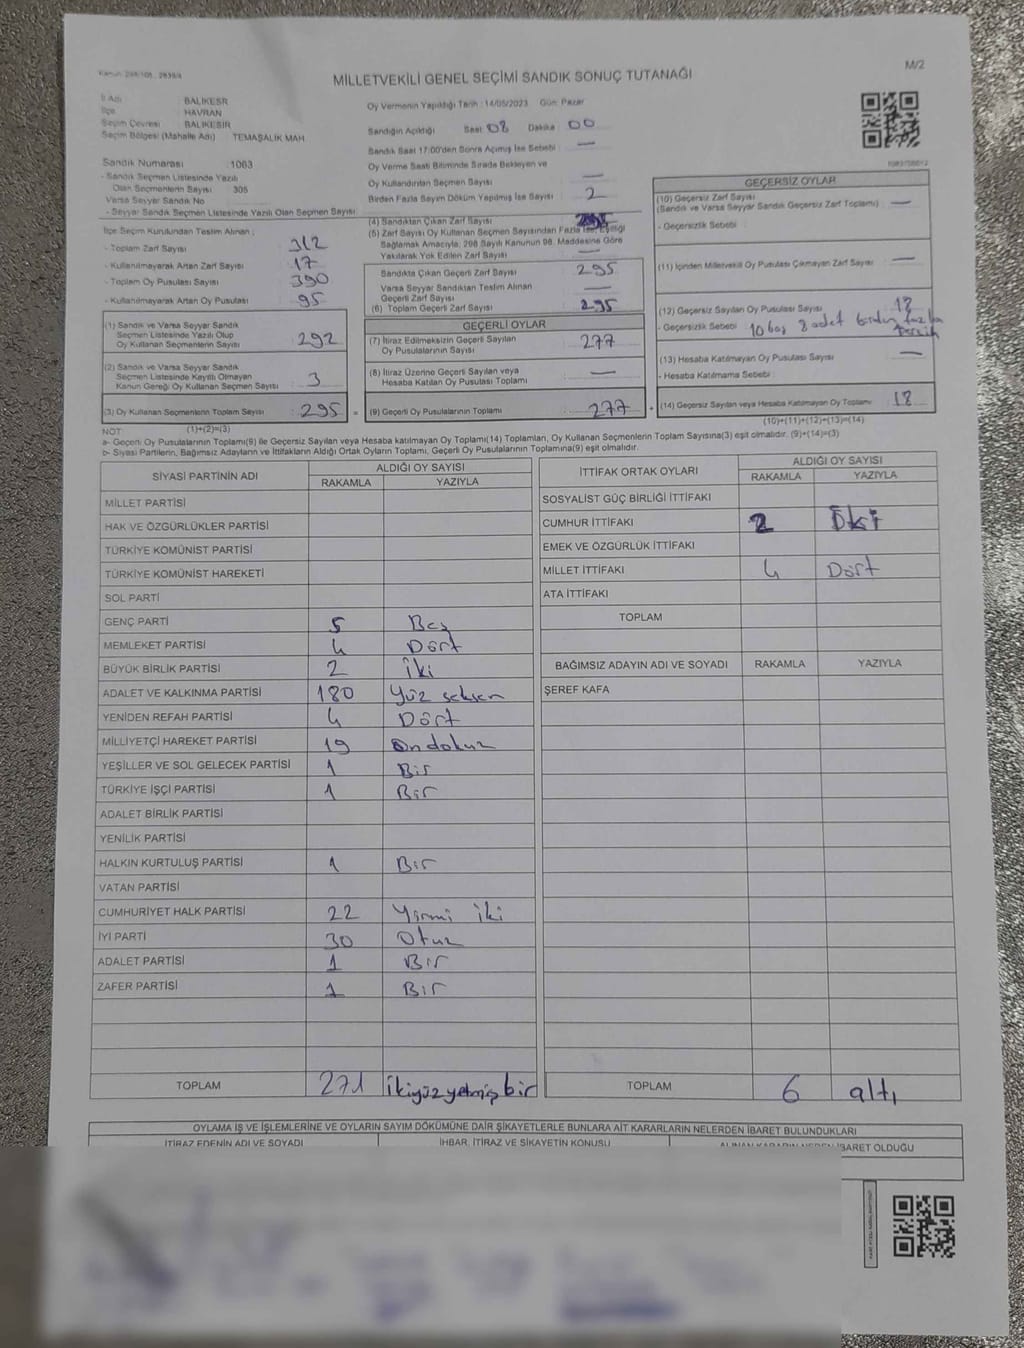 Kanun: 298/105, 2839/4
M/2
MİLLETVEKİLİ GENEL SEÇİMİ SANDIK SONUÇ TUTANAĞI
İl Adı : BALIKESİR
İlçe : HAVRAN
Seçim Çevresi : BALIKESİR
Seçim Bölgesi (Mahalle Adı) TEMAŞALIK MAH.
Sandık Numarası : 1063
- Sandık Seçmen Listesinde Yazılı
Olan Seçmenlerin Sayısı 305
Varsa Seyyar Sandık No
- Seyyar Sandık Seçmen Listesinde Yazılı Olan Seçmen Sayısı
İlçe Seçim Kurulundan Teslim Alınan ;
- Toplam Zarf Sayısı 312
- Kullanılmayarak Artan Zarf Sayısı 17
- Toplam Oy Pusulası Sayısı 390
- Kullanılmayarak Artan Oy Pusulası 95
(1) Sandık ve Varsa Seyyar Sandık
Seçmen Listesinde Yazılı Olup
Oy Kullanan Seçmenlerin Sayısı 292
(2) Sandık ve Varsa Seyyar Sandık
Seçmen Listesinde Kayıtlı Olmayan
Kanun Gereği Oy Kullanan Seçmen Sayısı 3
(3) Oy Kullanan Seçmenlerin Toplam Sayısı : 295 =
Oy Vermenin Yapıldığı Tarih : 14/05/2023 Gün: Pazar
Sandığın Açıldığı Saat 08 Dakika 00
Sandık Saat 17:00'den Sonra Açılmış İse Sebebi : —
Oy Verme Saati Bitiminde Sırada Bekleyen ve
Oy Kullandırılan Seçmen Sayısı —
Birden Fazla Sayım Döküm Yapılmış İse Sayısı 2
(4) Sandıktan Çıkan Zarf Sayısı
(5) Zarf Sayısı Oy Kullanan Seçmen Sayısından Fazla İse, Eşitliği
Sağlamak Amacıyla, 298 Sayılı Kanunun 98. Maddesine Göre
Yakılarak Yok Edilen Zarf Sayısı —
Sandıkta Çıkan Geçerli Zarf Sayısı 295
Varsa Seyyar Sandıktan Teslim Alınan
Geçerli Zarf Sayısı —
(6) Toplam Geçerli Zarf Sayısı 295
GEÇERLİ OYLAR
(7) İtiraz Edilmeksizin Geçerli Sayılan
Oy Pusulalarının Sayısı 277
(8) İtiraz Üzerine Geçerli Sayılan veya
Hesaba Katılan Oy Pusulası Toplamı —
(9) Geçerli Oy Pusulalarının Toplamı : 277 +
GEÇERSİZ OYLAR
(10) Geçersiz Zarf Sayısı
(Sandık ve Varsa Seyyar Sandık Geçersiz Zarf Toplamı) —
- Geçersizlik Sebebi :
(11) İçinden Milletvekili Oy Pusulası Çıkmayan Zarf Sayısı —
(12) Geçersiz Sayılan Oy Pusulası Sayısı 18
- Geçersizlik Sebebi 10 boş 8 adet birden fazla
(13) Hesaba Katılmayan Oy Pusulası Sayısı —
- Hesaba Katılmama Sebebi :
(14) Geçersiz Sayılan veya Hesaba Katılmayan Oy Toplamı : 18
NOT (1)+(2)=(3) (10)+(11)+(12)+(13)=(14)
a- Geçerli Oy Pusulalarının Toplamı(9) ile Geçersiz Sayılan veya Hesaba katılmayan Oy Toplamı(14) Toplamları, Oy Kullanan Seçmenlerin Toplam Sayısına(3) eşit olmalıdır. (9)+(14)=(3)
b- Siyasi Partilerin, Bağımsız Adayların ve İttifakların Aldığı Ortak Oyların Toplamı, Geçerli Oy Pusulalarının Toplamına(9) eşit olmalıdır.
SİYASİ PARTİNİN ADI ALDIĞI OY SAYISI
RAKAMLA YAZIYLA
MİLLET PARTİSİ
HAK VE ÖZGÜRLÜKLER PARTİSİ
TÜRKİYE KOMÜNİST PARTİSİ
TÜRKİYE KOMÜNİST HAREKETİ
SOL PARTİ
GENÇ PARTİ 5 Beş
MEMLEKET PARTİSİ 4 Dört
BÜYÜK BİRLİK PARTİSİ 2 İki
ADALET VE KALKINMA PARTİSİ 180 Yüz seksen
YENİDEN REFAH PARTİSİ 4 Dört
MİLLİYETÇİ HAREKET PARTİSİ 19 Ondokuz
YEŞİLLER VE SOL GELECEK PARTİSİ 1 Bir
TÜRKİYE İŞÇİ PARTİSİ 1 Bir
ADALET BİRLİK PARTİSİ
YENİLİK PARTİSİ
HALKIN KURTULUŞ PARTİSİ 1 Bir
VATAN PARTİSİ
CUMHURİYET HALK PARTİSİ 22 Yirmi iki
İYİ PARTİ 30 Otuz
ADALET PARTİSİ 1 Bir
ZAFER PARTİSİ 1 Bir
TOPLAM 271 ikiyüzyetmişbir
İTTİFAK ORTAK OYLARI ALDIĞI OY SAYISI
RAKAMLA YAZIYLA
SOSYALİST GÜÇ BİRLİĞİ İTTİFAKI
CUMHUR İTTİFAKI 2 İki
EMEK VE ÖZGÜRLÜK İTTİFAKI
MİLLET İTTİFAKI 4 Dört
ATA İTTİFAKI
TOPLAM
BAĞIMSIZ ADAYIN ADI VE SOYADI RAKAMLA YAZIYLA
ŞEREF KAFA
TOPLAM 6 altı
OYLAMA İŞ VE İŞLEMLERİNE VE OYLARIN SAYIM DÖKÜMÜNE DAİR ŞİKAYETLERLE BUNLARA AİT KARARLARIN NELERDEN İBARET BULUNDUKLARI
İTİRAZ EDENİN ADI VE SOYADI İHBAR, İTİRAZ VE ŞİKAYETİN KONUSU ALINAN KARARIN NEDEN İBARET OLDUĞU